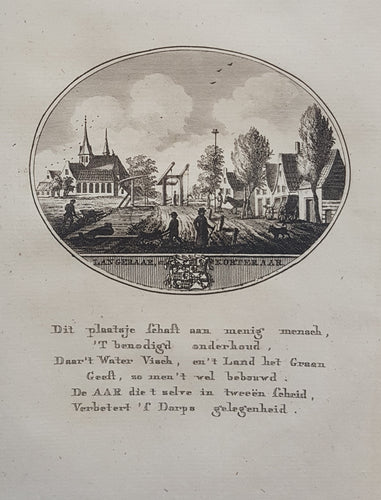 LANGERAAR, KORTERAAR
Dit plaatsje schaft aan menig mensch,
'T benodigd onderhoud,
Daar't Water Visch, en't Land het Graan
Geeft, zo men't wel bebouwd.
De AAR die t zelve in tweeën scheid,
Verbetert 's Dorps gelegenheid.